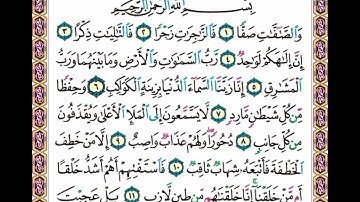 بِسْمِ اللَّهِ الرَّحْمَٰنِ الرَّحِيمِ
وَالصَّٰفَّٰتِ صَفًّا ١ فَالزَّٰجِرَٰتِ زَجْرًا ٢ فَالتَّٰلِيَٰتِ ذِكْرًا ٣
إِنَّ إِلَٰهَكُمْ لَوَٰحِدٌ ٤ رَّبُّ السَّمَٰوَٰتِ وَالْأَرْضِ وَمَا بَيْنَهُمَا وَرَبُّ
الْمَشَٰرِقِ ٥ إِنَّا زَيَّنَّا السَّمَاءَ الدُّنْيَا بِزِينَةٍ الْكَوَاكِبِ ٦ وَحِفْظًا
مِّن كُلِّ شَيْطَٰنٍ مَّارِدٍ ٧ لَّا يَسَّمَّعُونَ إِلَى الْمَلَإِ الْأَعْلَىٰ وَيُقْذَفُونَ
مِن كُلِّ جَانِبٍ ٨ دُحُورًا وَلَهُمْ عَذَابٌ وَاصِبٌ ٩ إِلَّا مَنْ خَطِفَ
الْخَطْفَةَ فَأَتْبَعَهُ شِهَابٌ ثَاقِبٌ ١٠ فَاسْتَفْتِهِمْ أَهُمْ أَشَدُّ خَلْقًا
أَم مَّنْ خَلَقْنَا إِنَّا خَلَقْنَٰهُم مِّن طِينٍ لَّازِبٍ ١١ بَلْ عَجِبْتَ